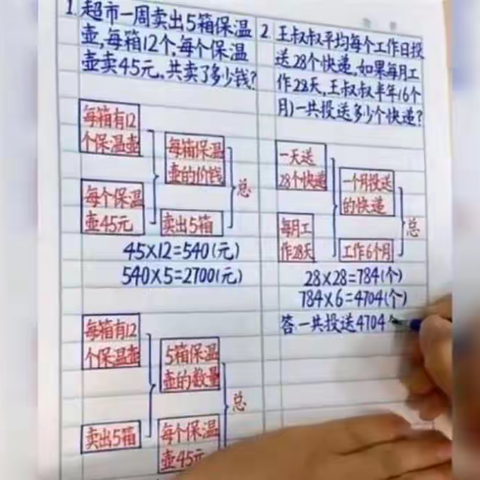 1. 超市一周卖出5箱保温
壶,每箱12个,每个保温
壶卖45元,共卖了多少钱?
每箱有12
个保温壶
每箱保温
壶的价钱
总
每个保温
壶45元
卖出5箱
45×12=540(元)
540×5=2700(元)
每箱有12
个保温壶
5箱保温
壶的数量
总
卖出5箱
每个保温
壶45元
2. 王叔叔平均每个工作日投
送28个快递,如果每月工
作28天,王叔叔半年(6个
月)一共投送多少个快递?
一天送
28个快递
一个月投送
的快递
总
每月工
作28天
工作6个月
28×28=784(个)
784×6=4704(个)
答一共投送4704